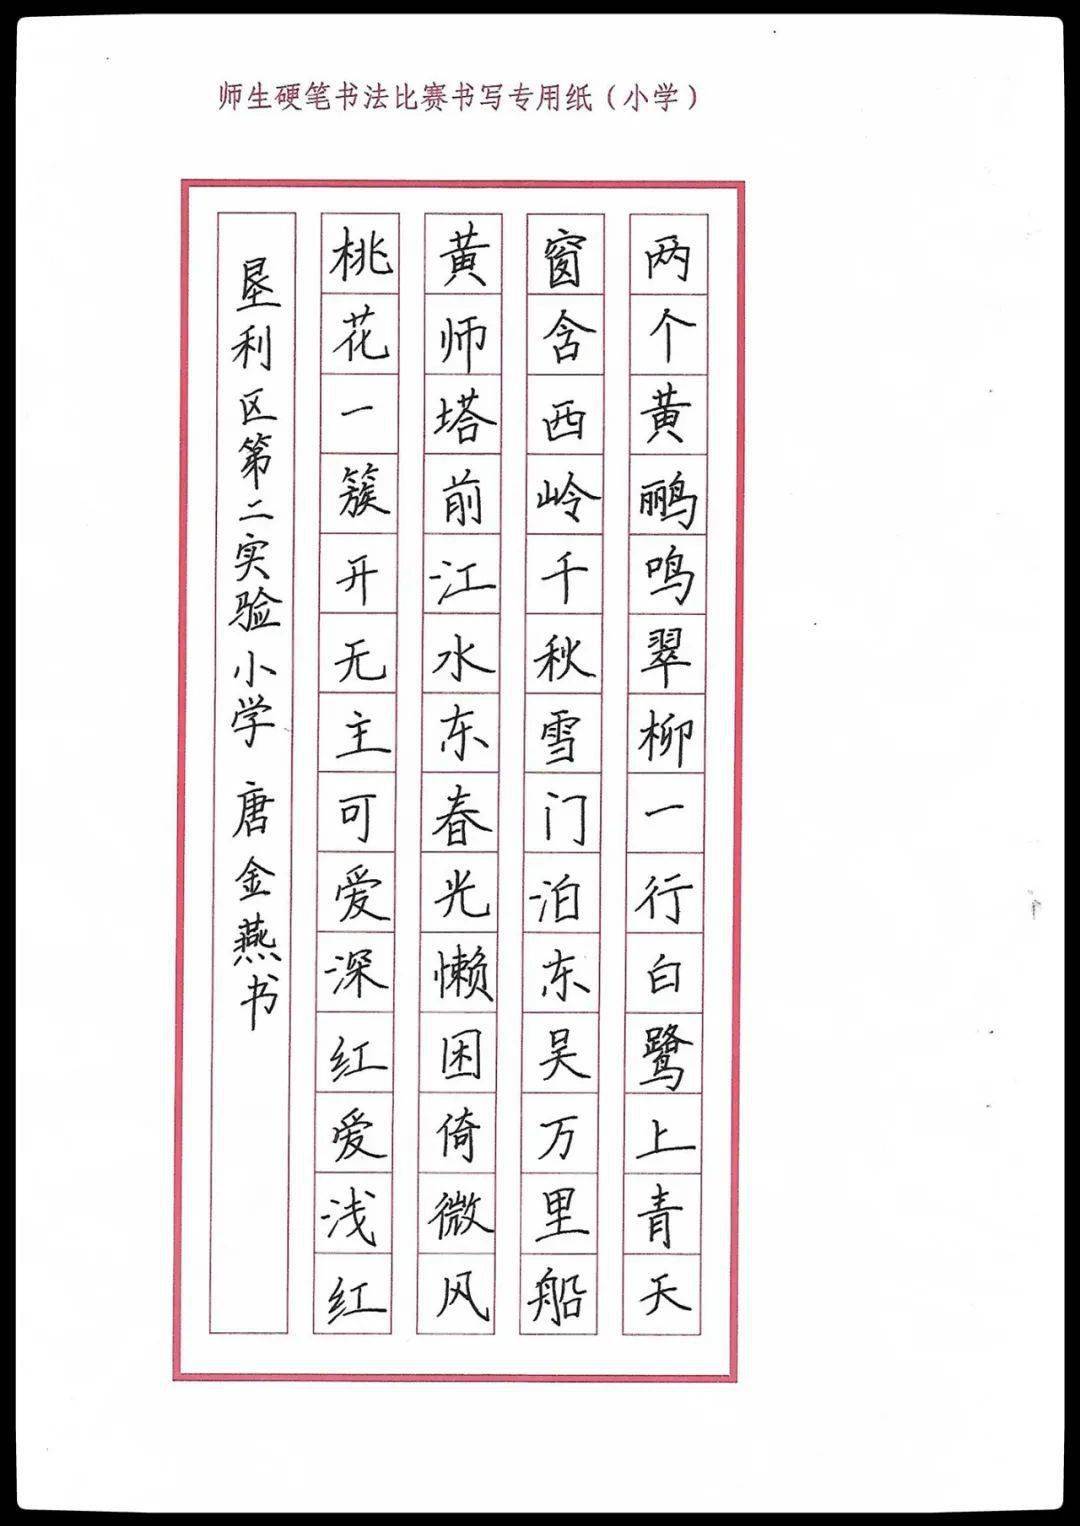 师生硬笔书法比赛书写专用纸（小学）
两个黄鹂鸣翠柳一行白鹭上青天
窗含西岭千秋雪门泊东吴万里船
黄师塔前江水东春光懒困倚微风
桃花一簇开无主可爱深红爱浅红
垦利区第二实验小学 唐金燕书